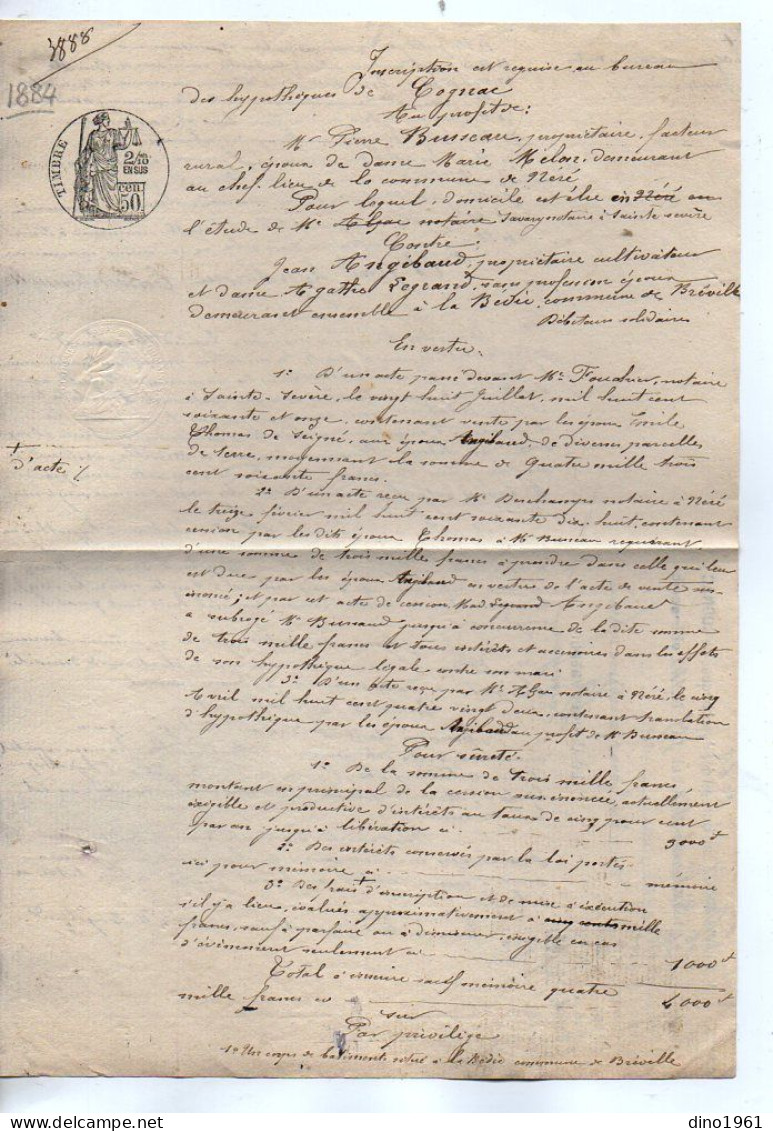 3888
1884
TIMBRE
2/10
EN SUS
50 cen
Inscription est requise au bureau
des hypothèques de Cognac
Au profit de :
Mr Pierre Busseau, propriétaire, facteur
rural, époux de dame Marie Melon, demeurant
au chef-lieu de la commune de Néré
Pour lequel, domicile est élu en Néré en
l'étude de Me notaire Savary notaire à Sainte sevère
Contre :
Jean Angibaud, propriétaire cultivateur
et dame Agathe Legrand, sans profession époux
demeurant ensemble à la Bedie, commune de Bréville
Débiteurs solidaires
En vertu
1o D'un acte passé devant Me Foucher, notaire
à Sainte-Sevère, le vingt huit Juillet, mil huit cent
soixante et onze, contenant vente par les époux Emile
Thomas de Seigné, aux époux Angibaud, de diverses parcelles
de terre, moyennant la somme de Quatre mille trois
cent soixante francs.
+
d'acte /.
2o D'un acte reçu par Me Deschamps notaire à Néré
le treize février mil huit cent soixante dix huit, contenant
cession par les dits époux Thomas à Mr Busseau requérant
d'une somme de trois mille francs à prendre dans celle qui leur
est due par les époux Angibaud en vertu de l'acte de vente sus-
énoncé ; et par cet acte de cession Mad. Legrand Angibaud
a subrogé Mr Busseaud jusqu'à concurrence de la dite somme
de trois mille francs et tous intérêts et accessoires dans les effets
de son hypothèque légale contre son mari
3o D'un acte reçu par Me notaire à Néré, le cinq
Avril mil huit cent quatre vingt deux, contenant translation
d'hypothèque par les époux Angibaud au profit de Mr Busseau
Pour sûreté.
1o De la somme de trois mille francs
montant en principal de la cession sus-énoncée, actuellement
exigible et productive d'intérêts au taux de cinq pour cent
par an jusqu'à libération ci 3000 f
2o Des intérêts conservés par la loi portés
ici pour mémoire ci mémoire
3o Des frais + d'inscription et de mise à exécution
s'il y a lieu, évalués approximativement à cinq cents mille
francs, sauf à parfaire ou à diminuer, exigible en cas
d'événement seulement ci 1000 f
Total à inscrire sauf mémoire quatre
mille francs ci 4000 f
sur
Par privilège
1o Un corps de batiments situé à la Bedie commune de Bréville
dino1961